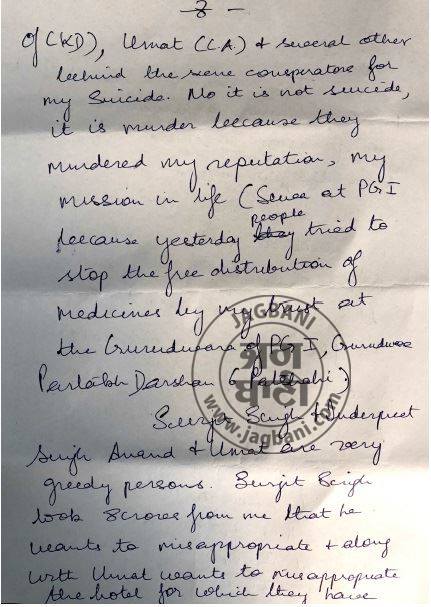 - 3 -
of (KD)), Umat (C.A.) & several other
behind the scene conspirators for
my Suicide. No it is not suicide,
it is murder because they
murdered my reputation, my
mission in life (Sewa at PGI
because yesterday people tried to
stop the free distribution of
medicines by my trust at
the Gurudwara of PGI, Gurudwara
Darshan
JAGBANI
जग
बाणी
www.jagbani.com
Surjit Singh & Inderpreet
Singh Anand & Umat are very
greedy persons. Surjit Singh
took 8 crores from me that he
wants to misappropriate & along
with Umat wants to misappropriate
the hotel for which they have